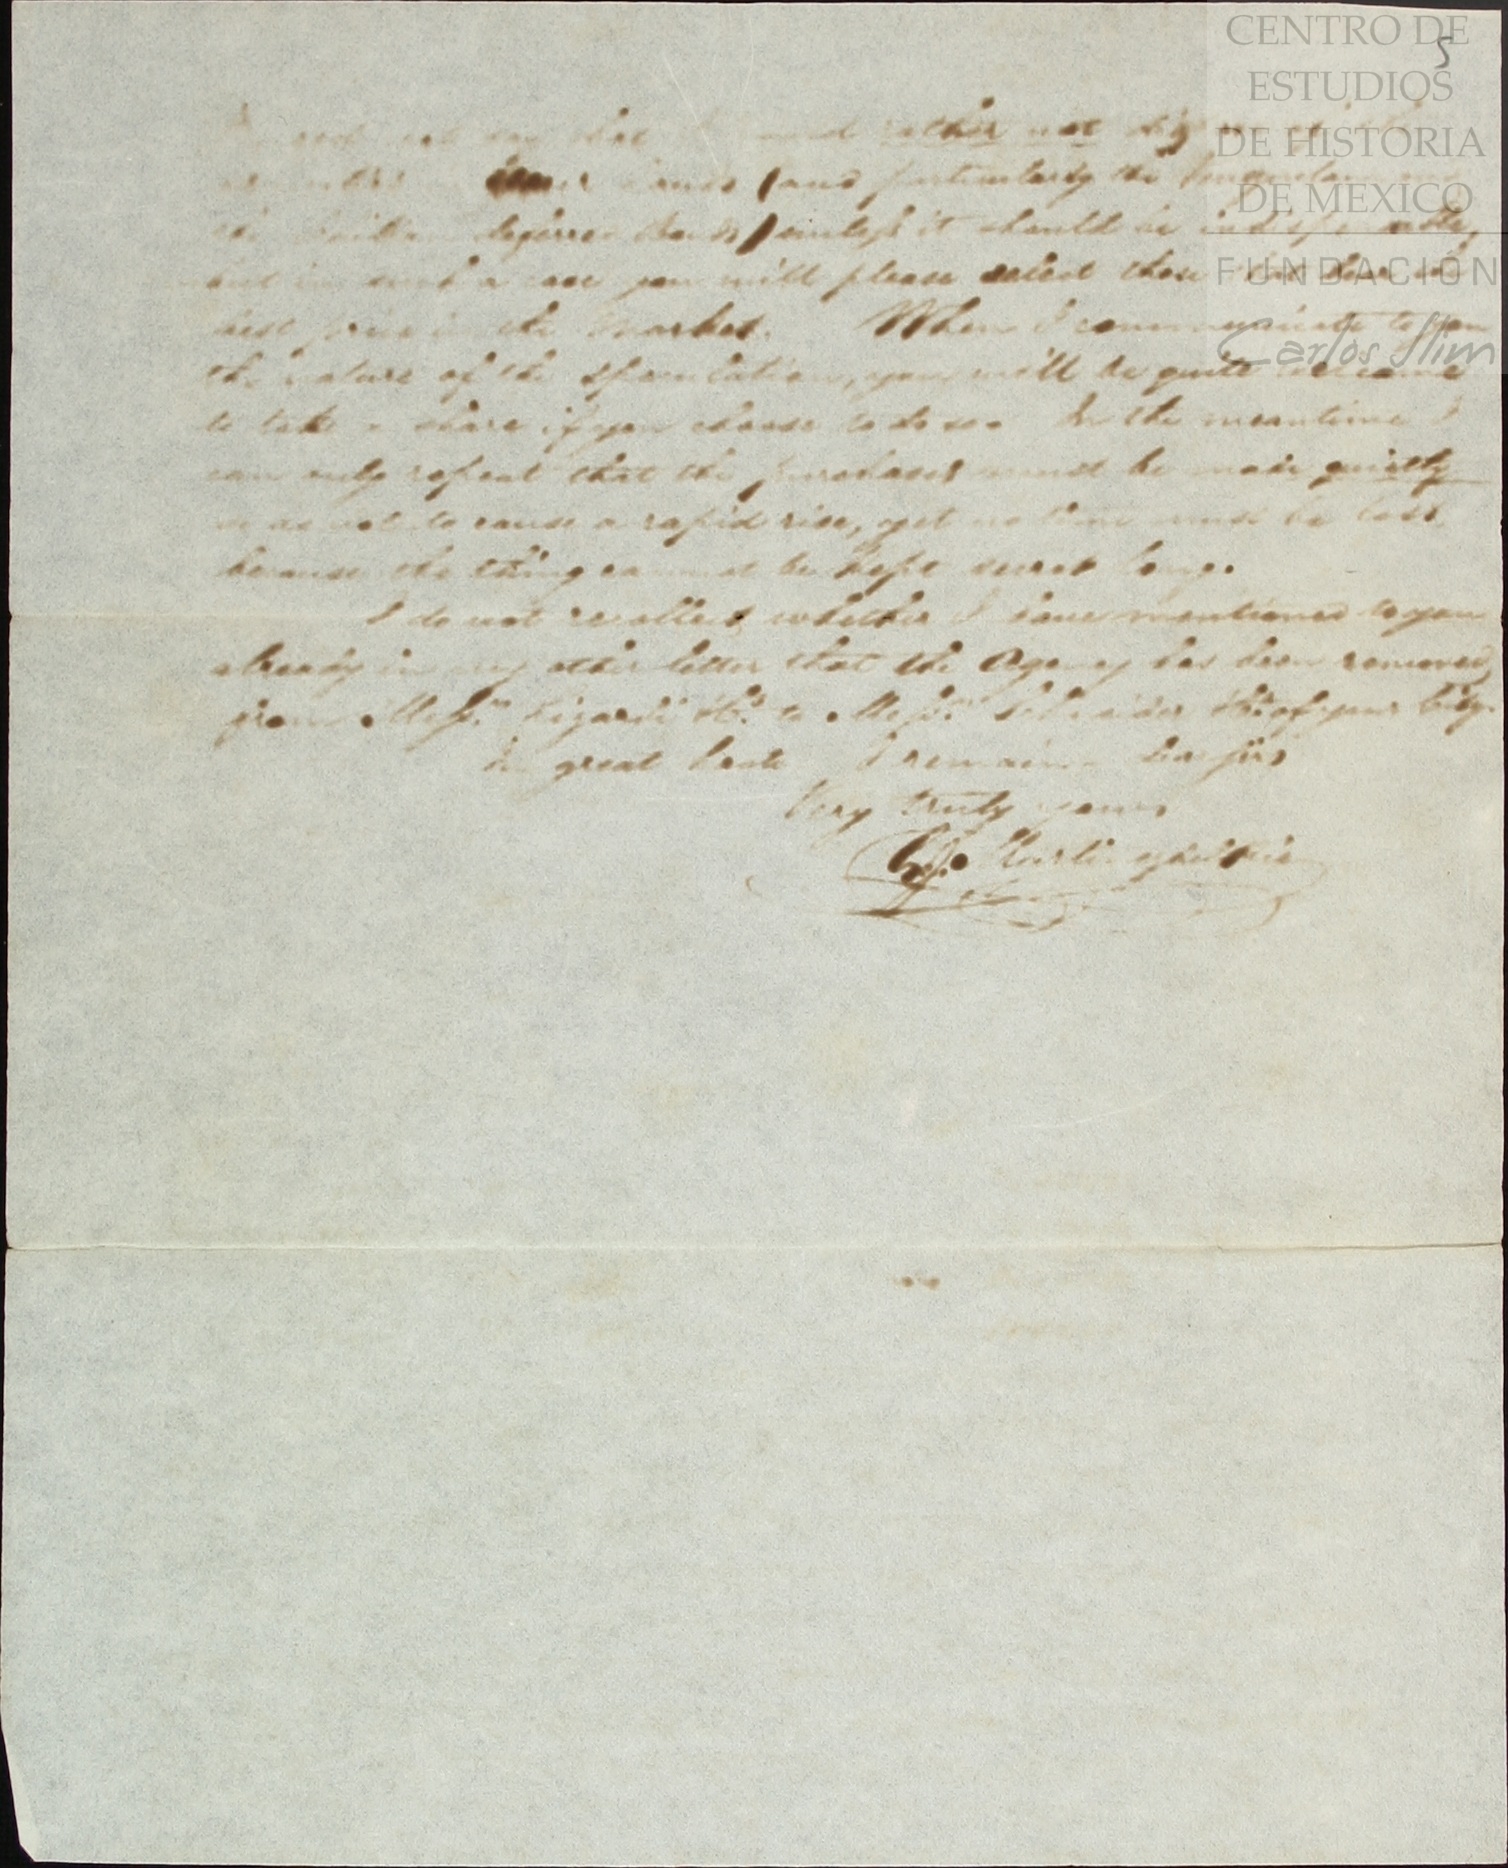 5
CENTRO DE
ESTUDIOS
DE HISTORIA
DE MEXICO
FUNDACIÓN
Carlos Slim
say that I would rather not
hands (and particularly the
the deferred bonds) unless it should be
but in such a case you will please select those
best price in the market. When I communicate to you
the nature of the speculation, you will be quite welcome
to take a share if you choose to do so. In the meantime I
can only repeat that the purchases must be made quietly
so as not to cause a rapid rise, yet no time must be lost
because the thing cannot be kept secret long.
I do not recollect whether I have mentioned to you
already in my other letter that the Agency has been removed
from Messrs. Lizardi & Co. to Messrs. Schneider & Co. of your City.
In great haste I remain dear Sirs
Very truly yours